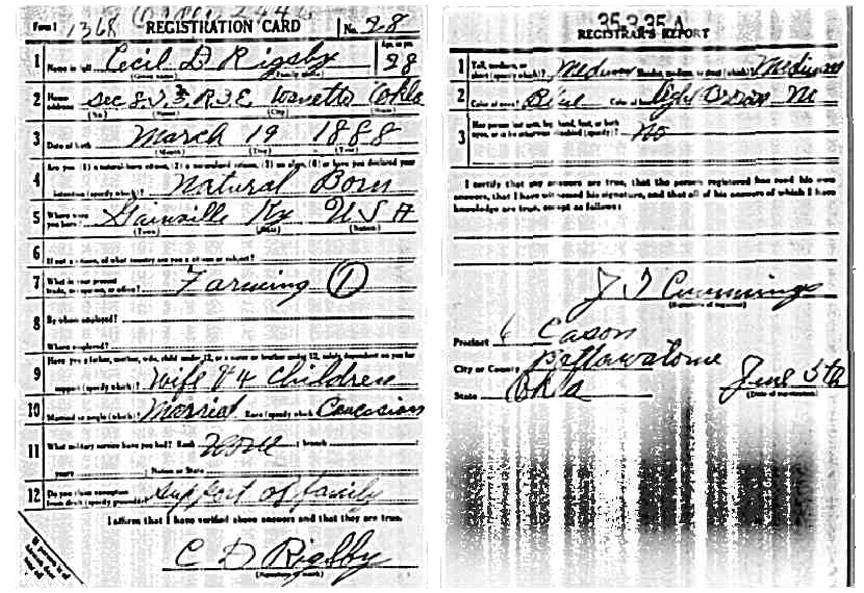 Form 1 1368 REGISTRATION CARD No. 28
1 Name in full Cecil D Rigsby Age, in yrs. 28
(Given name) (Family name)
2 Home address Sec 8 T 3 R 3 E Wanette Okla
(No.) (Street) (City) (State)
3 Date of birth March 19 1888
(Month) (Day) (Year)
Are you (1) a natural born citizen, (2) a naturalized citizen, (3) an alien, (4) or have you declared your
4 intention (specify which)? Natural Born
5 Where were you born? Gainsille Tx U S A
(Town) (State) (Nation)
6 If not a citizen, of what country are you a citizen or subject?
7 What is your present trade, occupation, or office? Farming 1
8 By whom employed?
Where employed?
9 Have you a father, mother, wife, child under 12, or a sister or brother under 12, solely dependent on you for
support (specify which)? Wife & 4 Children
10 Married or single (which)? Married Race (specify which) Caucasian
11 What military service have you had? Rank None branch
years Nation or State
12 Do you claim exemption from draft (specify grounds)? Support of family
I affirm that I have verified above answers and that they are true.
C D Rigsby
(Signature or mark)
35 3 35 A
REGISTRAR'S REPORT
1 Tall, medium, or short (specify which)? Medium Slender, medium, or stout (which)? Medium
2 Color of eyes? Blue Color of hair? light Brown No
3 Has person lost arm, leg, hand, foot, or both eyes, or is he otherwise disabled (specify)? No
I certify that my answers are true, that the person registered has read his own
answers, that I have witnessed his signature, and that all of his answers of which I have
knowledge are true, except as follows:
J T Cummings
(Signature of registrar)
Precinct Cason
City or County Pottawatomie
State Okla June 5th
(Date of registration)